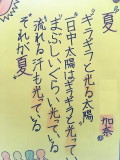 "夏"
加奈
"ギラギラと光る太陽
"日中太陽はギラギラと光って"
"まぶしいぐらい光っている
流れる汗も光っている
それが夏"